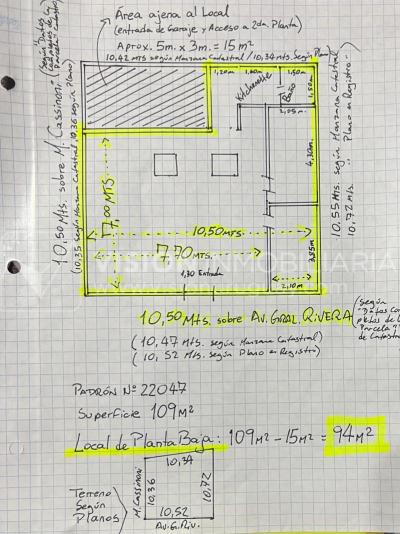 Área ajena al Local
(entrada de Garaje y Acceso a 2da. Planta)
Aprox. 5m. x 3m. = 15 m²
10,42 MTS según Manzana Catastral / 10,34 MTS. Según Plano
1,20m.
1,60m.
1,50m.
Kitchenette
Baño
1,50m.
2,05m.
4,30m.
7,00 MTS
10,50 MTS.
7,70 MTS.
3,85m.
1,30 Entrada
2,10m.
10,50 Mts. sobre M. Cassinoni
(según Datos
Parcela
(10,35 según Manzana Catastral 10,36 según Plano)
10,55 Mts. según Manzana Catastral
10,72 Mts. " Plano en Registro
INMOBILIARIA
10,50 Mts. sobre Av. GRAL. RIVERA
(según
"Datos Com
pletos de la
Parcela"
de Catastro
(10,47 Mts. según Manzana Catastral)
(10,52 Mts. según Plano en Registro)
PADRÓN Nº 22047
Superficie 109 M²
Local de Planta Baja: 109 M² - 15 M² = 94 M²
Terreno
Según
Planos
M. Cassinoni
10,34
10,36
10,72
10,52
Av. G. Riv.